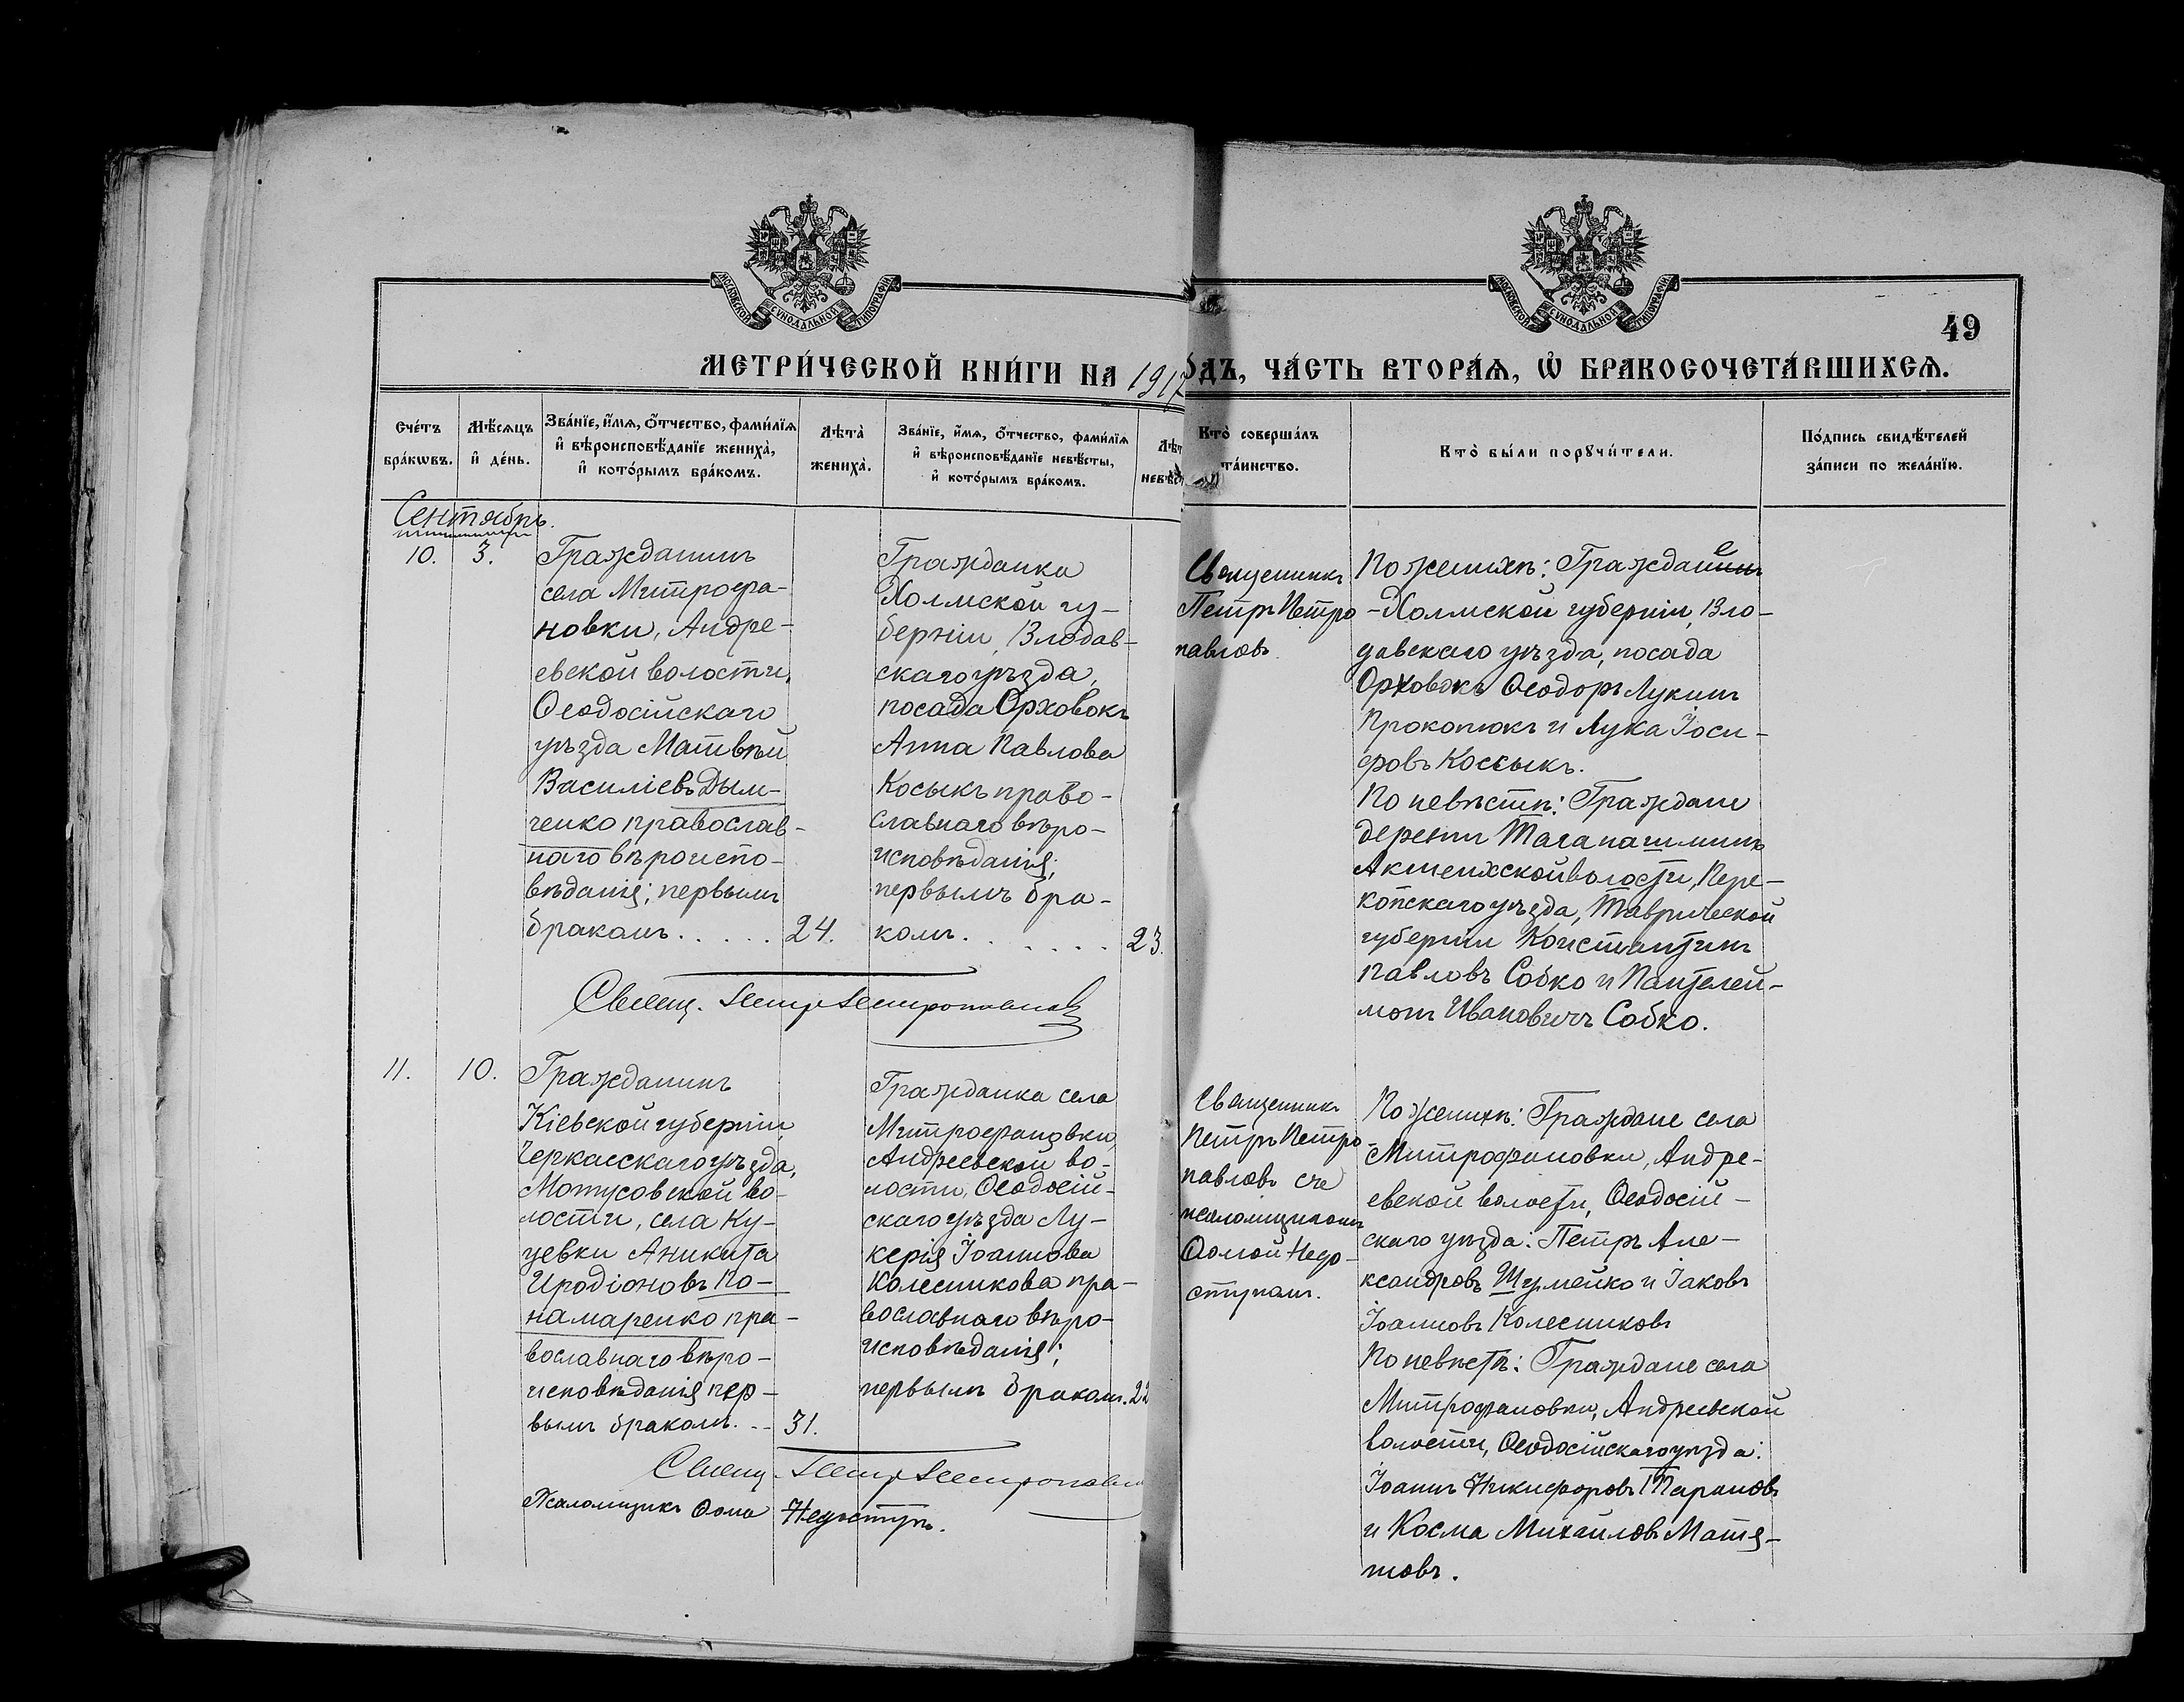 МОСКОВСКОЙ СѴНОДАЛЬНОЙ ТИПОГРАФІИ
МОСКОВСКОЙ СѴНОДАЛЬНОЙ ТИПОГРАФІИ
49
МЕТРИ́ЧЕСКОЙ КНИ́ГИ НА 1917
ОДЪ, ЧА́СТЬ ВТОРА́Ѧ, Ѿ БРАКОСОЧЕТА́ВШИХСѦ.
Сче́тъ бра́кѡвъ.
Мѣ́сѧцъ и҆ де́нь.
Зва́нїе, и҆́мѧ, о҆́тчество, фами́лїѧ
и҆ вѣроисповѣ́данїе жениха̀,
и҆ кото́рымъ бра́комъ.
Лѣ́та̀ жениха̀.
Зва́нїе, и҆́мѧ, о҆́тчество, фами́лїѧ
и҆ вѣроисповѣ́данїе невѣ́сты,
и҆ кото́рымъ бра́комъ.
Лѣт
невѣс
Кто̀ соверша́лъ
та́инство.
Кто̀ бы́ли порꙋчи́тели.
По́дпись свидѣ́телей
за́писи по жела́нїю.
Сентябрь.
10. 3.
Гражданинъ
села Митрофа-
новки, Андре-
евской волости,
Ѳеодосійскаго
уѣзда Матвѣй
Василіевъ Дым-
ченко православ-
наго вѣроиспо-
вѣданія; первымъ
бракомъ. . . . . 24.
Гражданка
Холмской гу-
берніи, Влодав-
скаго уѣзда,
посада Орховокъ
Анна Павлова
Косыкъ право-
славнаго вѣро-
исповѣданія;
первымъ бра-
комъ. . . . . . . 23.
Священникъ
Петръ Петро
павловъ
По женихѣ: Граждане
-Холмской губерніи, Вло-
давскаго уѣзда, посада
Орховокъ Ѳеодоръ Лукинъ
Прокопюкъ и Лука Іоси-
фовъ Коссыкъ.
По невѣстѣ: Граждане
деревни Таганашминъ
Акшеихской волости, Пере-
копскаго уѣзда, Таврической
губерніи Константинъ
Павловъ Собко и Пантелей-
монъ Ивановичъ Собко.
Свящ. Петр Петропавлов
11. 10.
Гражданинъ
Кіевской губерніи,
Черкасскаго уѣзда,
Мотусовской во-
лости, села Ку-
цевки Аникита
Иродіоновъ По-
намаренко пра-
вославнаго вѣро-
исповѣданія пер-
вымъ бракомъ. - - 31.
Гражданка села
Митрофановки,
Андреевской во-
лости, Ѳеодосій-
скаго уѣзда Лу-
керія Іоаннова
Колесникова пра-
вославнаго вѣро-
исповѣданія;
первымъ бракомъ. 22
Священникъ
Петръ Петро
павловъ съ
псаломщикомъ
Ѳомой Недо-
ступомъ.
По женихѣ: Граждане села
Митрофановки, Андре-
евской волости, Ѳеодосій-
скаго уѣзда: Петръ Але-
ксандровъ Шумейко и Іаковъ
Іоанновъ Колесниковъ
По невѣстѣ: Граждане села
Митрофановки, Андреевской
волости, Ѳеодосійскаго уѣзда:
Іоаннъ Никифоровъ Тарановъ
и Косма Михаиловъ Матя-
шовъ.
Свящ. Петр Петропавлов
Псаломщикъ Ѳома Недоступъ.